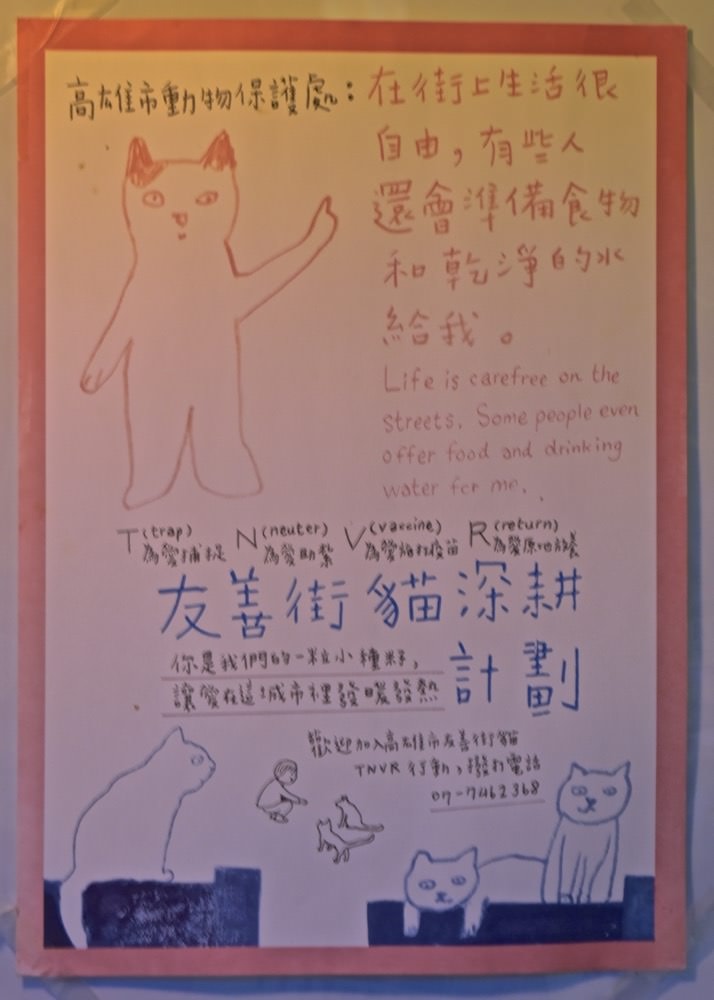 高雄市動物保護處：在街上生活很
自由，有些人
還會準備食物
和乾淨的水
給我。
Life is carefree on the
streets. Some people even
offer food and drinking
water for me.
T(trap) N(neuter) V(vaccine) R(return)
為愛捕捉 為愛助紮 為愛施打疫苗 為愛原地放養
友善街貓深耕
計劃
你是我們的一粒小種籽，
讓愛在這城市裡發暖發熱
歡迎加入高雄市友善街貓
TNVR 行動，撥打電話
07-7462368